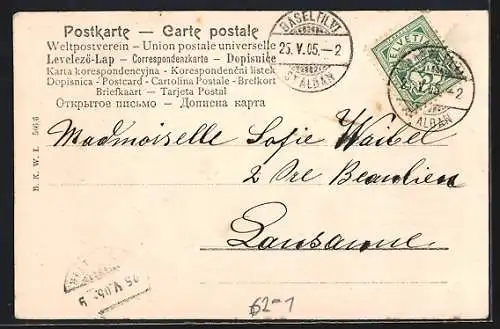 Postkarte — Carte postale
Weltpostverein - Union postale universelle
Levelező-Lap - Correspondenzkarte - Dopisnice
Karta korespondencyjna - Korespondenční listek
Dopisnica - Postcard - Cartolina Postale - Brefkort
Briefkaart — Tarjeta Postal
Открытое письмо — Дописна карта
BASEL
25.V.05.–2
ST ALBAN
HELVETIA
–2
ALBAN
Mademoiselle Sofie Waibel
2 Pre Beaulieu
Lausanne
B. K. W. I.
25.V.05
62-1